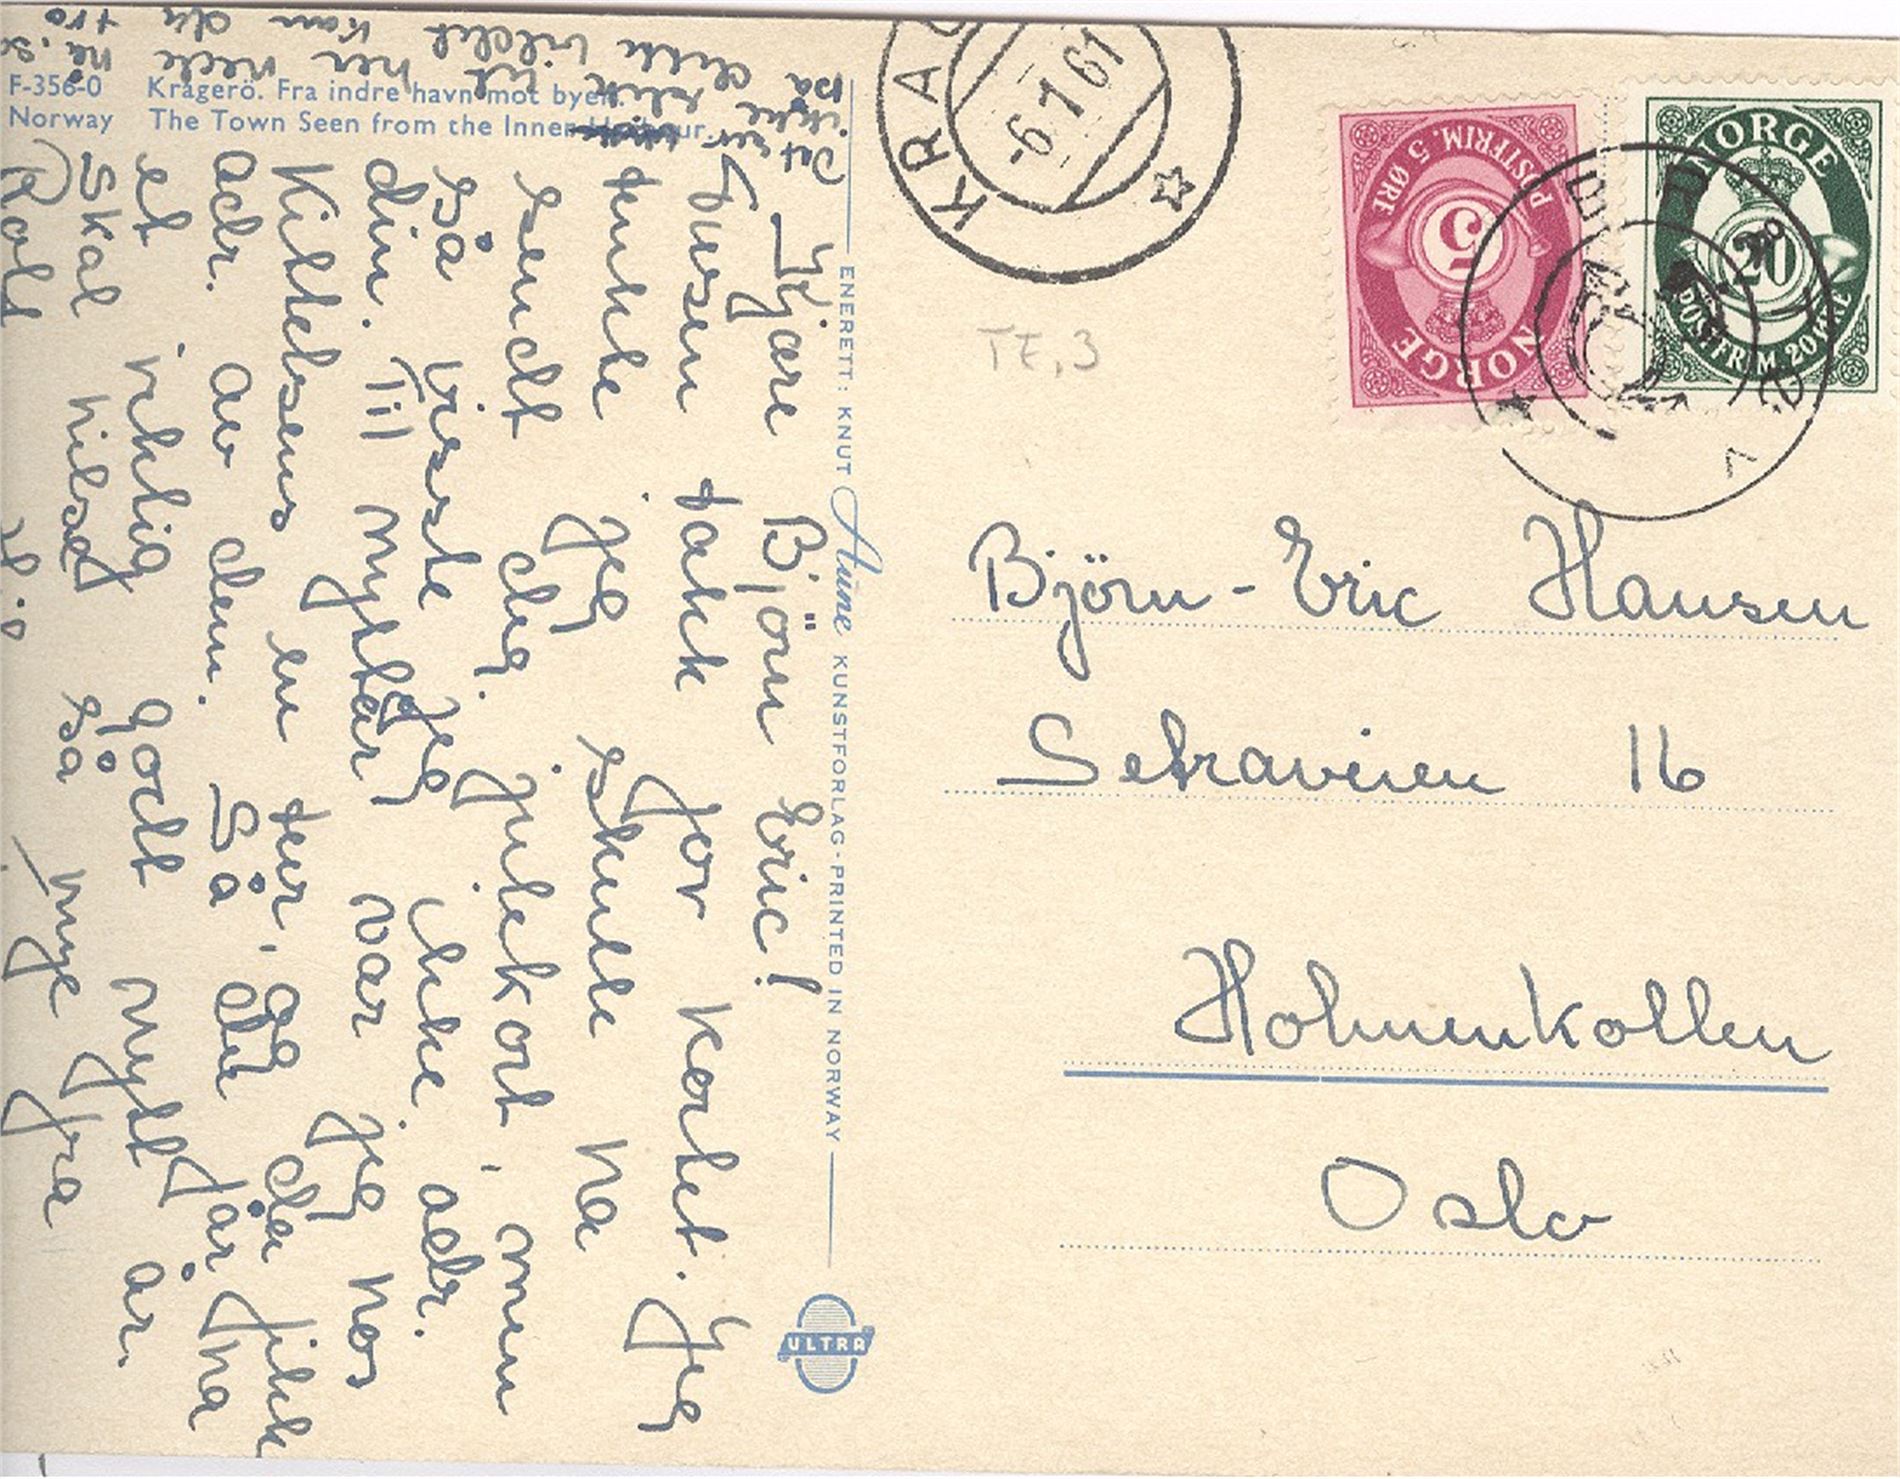 F-356-0 Kragerö. Fra indre havn mot byen.
Norway The Town Seen from the Inner Harbour.
Kjære Björn Eric!
Tusen takk for kortet. Jeg
tenkte jeg skulle ha
sendt deg julekort, men
så visste jeg ikke adr.
din. Til nyttår var jeg hos
Kittelsens en tur, og da fikk
adr. av dem. Så du får ha
et riktig godt nytt år.
skal hilse så mye fra
Det ser
ikke slik ut her nede nå
på dette bildet kan du tro
ENERETT: KNUT Aune KUNSTFORLAG - PRINTED IN NORWAY
ULTRA
KRAG
-6.1.61
NORGE
POSTFRIM. 5 ØRE
5
NORGE
POSTFRIM. 20 ØRE
20
TE.3
Björn-Eric Hansen
Setraveien 16
Holmenkollen
Oslo